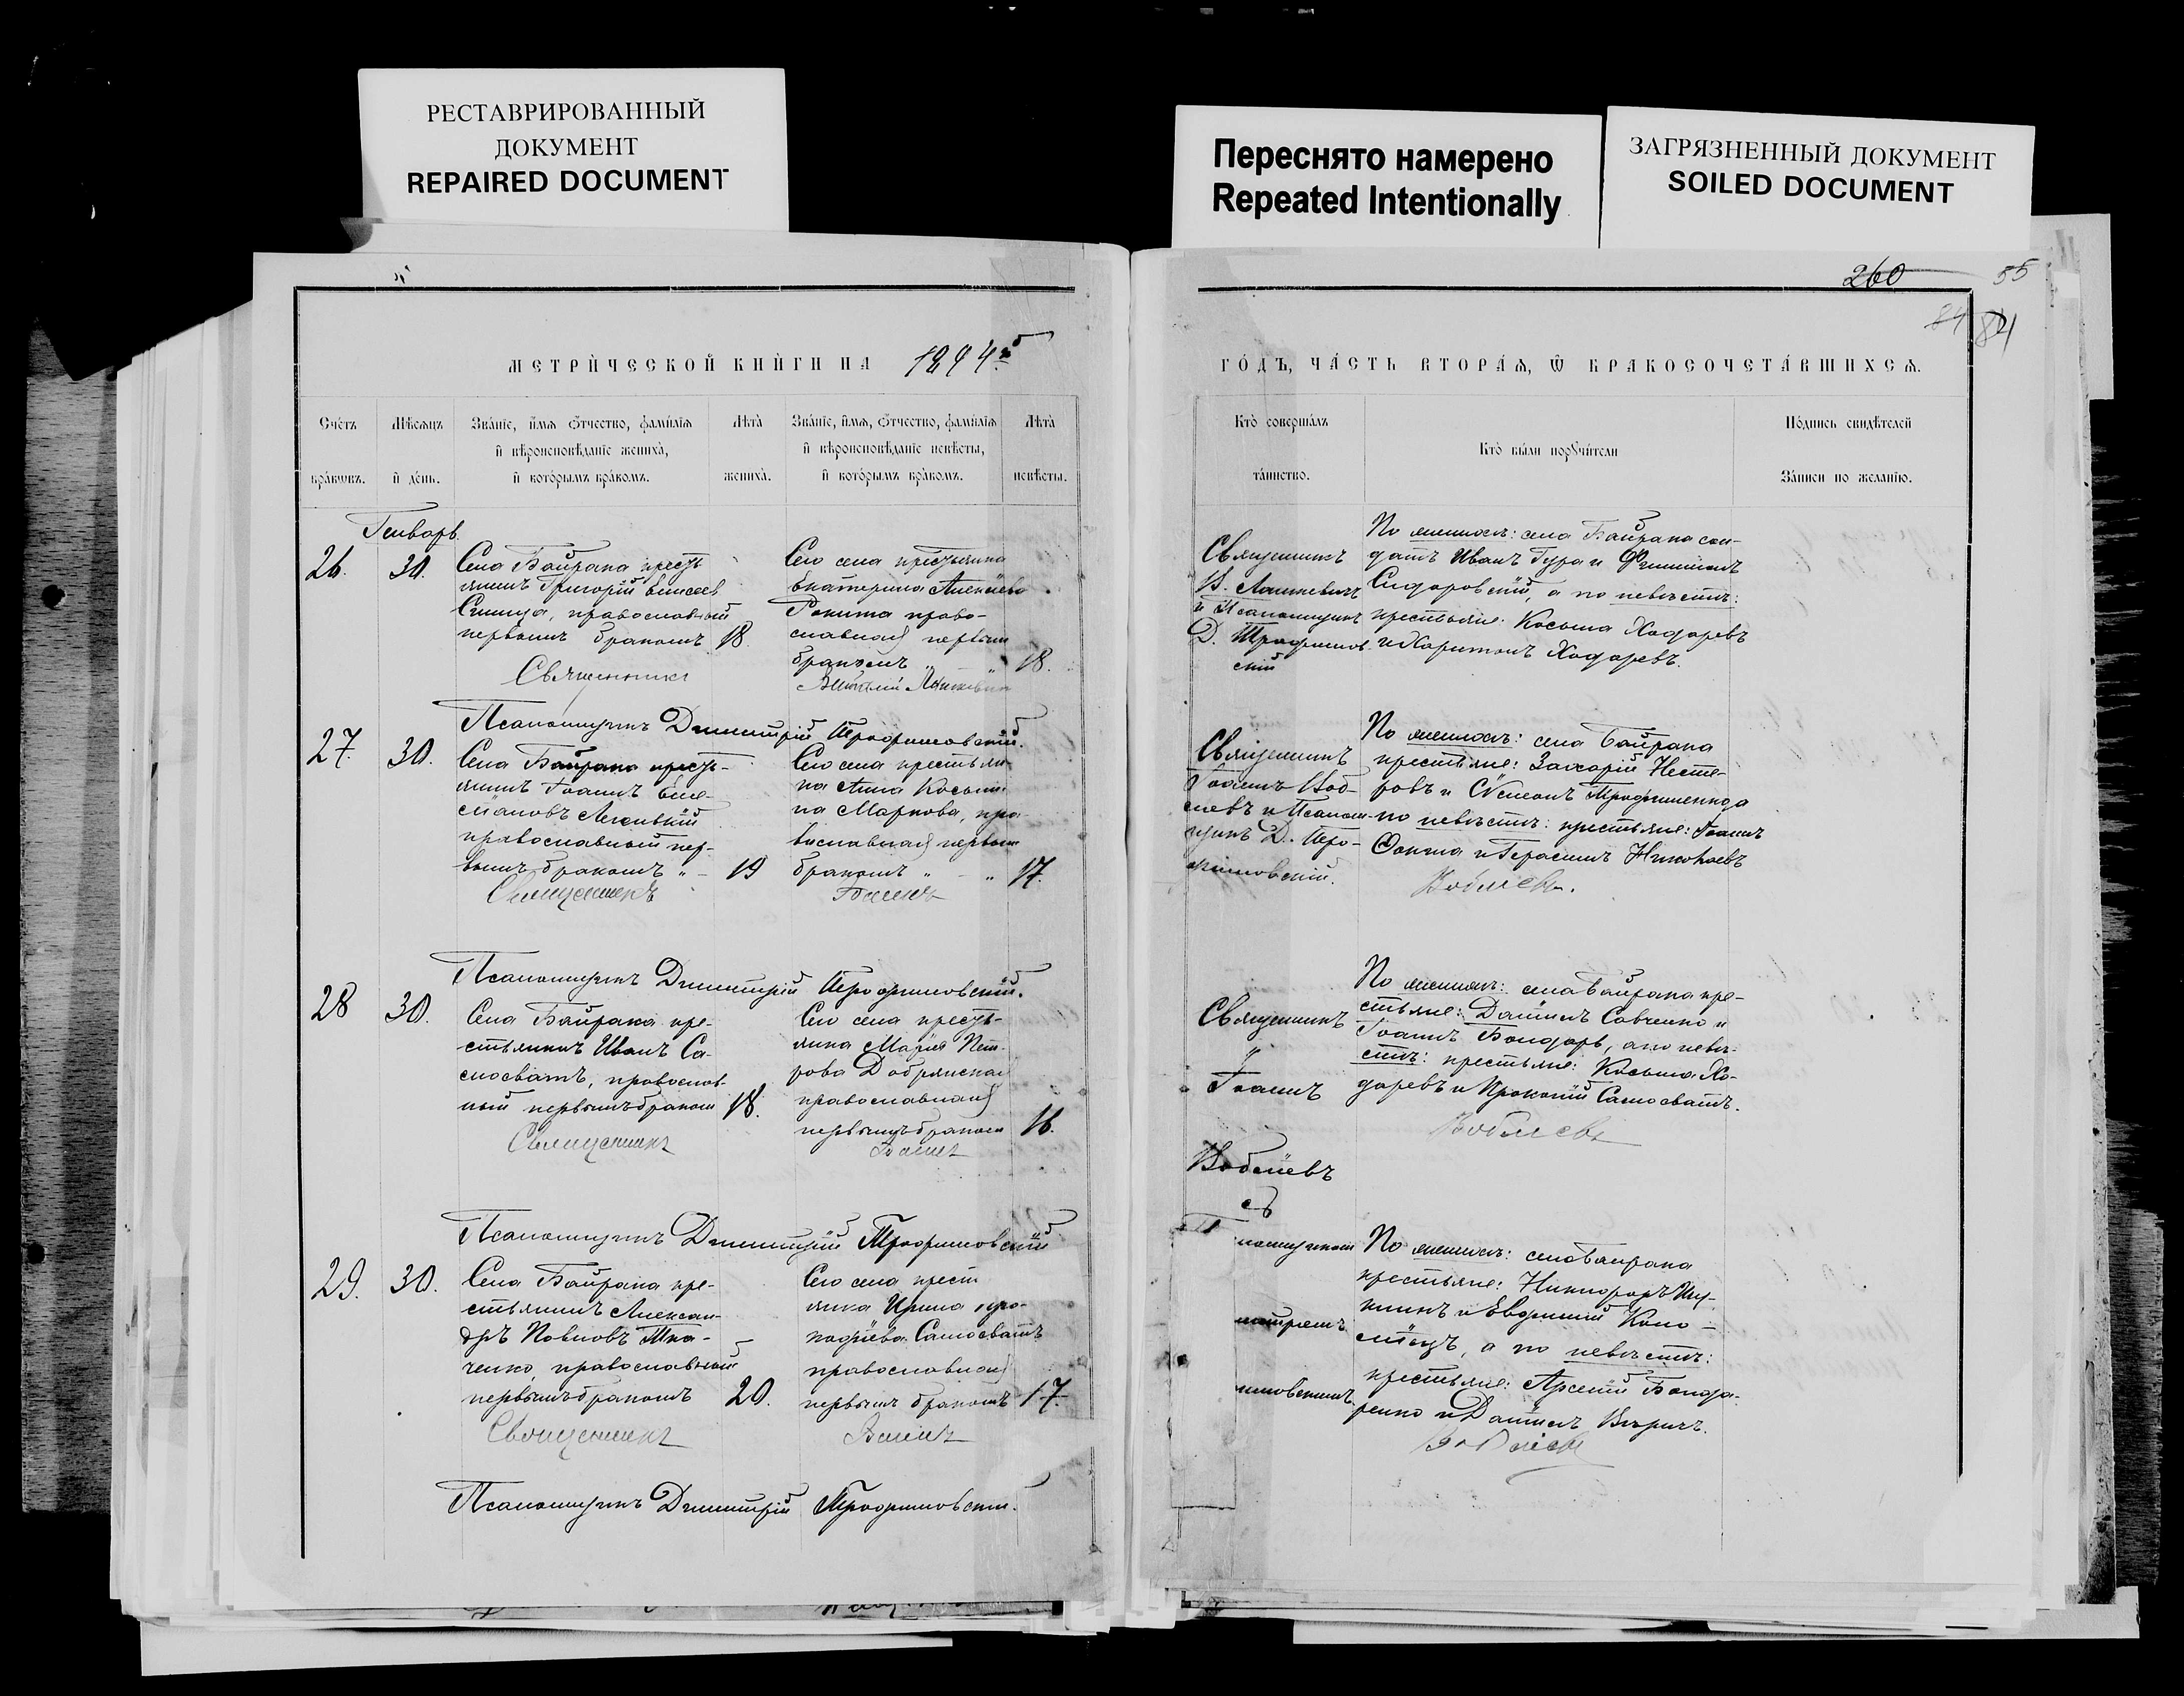 РЕСТАВРИРОВАННЫЙ
ДОКУМЕНТ
REPAIRED DOCUMENT
Переснято намерено
Repeated Intentionally
ЗАГРЯЗНЕННЫЙ ДОКУМЕНТ
SOILED DOCUMENT
260
55
84 84
МЕТРИ́ЧЕСКОЙ КНИ́ГИ НА
ГО́ДЪ, ЧА́СТЬ ВТОРА́Ѧ, Ѿ БРАКОСОЧЕТА́ВШИХСѦ.
Сче́тъ
бра́кѡвъ.
Мѣ́сѧцъ
и де́нь.
Зва́нїе, и́мѧ ѻ́тчество, фами́лїѧ
и вѣроисповѣ́данїе жениха̀,
и кото́рымъ бра́комъ.
Лѣта̀
жениха̀.
Зва́нїе, и́мѧ, ѻ́тчество, фами́лїѧ
и вѣроисповѣ́данїе невѣ́сты,
и кото́рымъ бра́комъ.
Лѣта̀
невѣ́сты.
Кто̀ соверша́лъ
та́инство.
Кто̀ бы́ли порꙋчи́тели
По́дпись свидѣ́телей
За́писи по жела́нїю.
Генварь.
26.
30.
Села Байрака кресть
янинъ Григорій Елисеев
Синица, православный
первымъ бракомъ
18
Священникъ
Сего села крестьянка
Екатерина Алексіева
Рокита право-
славная первым
бракомъ „ — „
18.
Священникъ
В. Лашкевичъ
и Псаломщикъ
Д. Трофимов
скій
По женихѣ: села Байрака сол-
датъ Иванъ Гура и
Сидоровскій, а по невѣстѣ:
крестьяне: Косьма Ходаревъ
и Харитонъ Ходаревъ.
Псаломщикъ Димитрій Трофимовскій.
27.
30.
Села Байрака кресть-
янинъ Іоаннъ Еме-
ліановъ
православный пер-
вымъ бракомъ „ —
19
Священникъ
Сего села крестьян-
ка Анна Косьми
на Маркова, пра
вославная первым
бракомъ „ — „
17.
Іоаннъ
Священникъ
Іоаннъ Воб-
лиевъ и Псалом-
щикъ Д. Тро-
фимовскій.
По женихѣ: села Байрака
крестьяне: Захарій Несте-
ровъ и Сѵмеонъ Трофименко, а
по невѣстѣ: крестьяне: Іоаннъ
Ѳокина и Герасимъ Николаевъ
Псаломщикъ Димитрій Трофимовскій.
28
30.
Села Байрака кре-
стьянинъ Иванъ Са-
мосватъ, православ-
ный первымъ браком
18.
Священникъ
Сего села кресть-
янка Марія Пет-
рова Добрянская
православная
первымъ браком
16.
Іоаннъ
Священникъ
Іоаннъ
По женихѣ: села Байрака кре-
стьяне: Даніилъ Савченко и
Іоаннъ Бондарь, а по невѣ-
стѣ: крестьяне: Косьма Хо-
даревъ и Прокопій Самосватъ.
съ
Псаломщикъ Димитрій Трофимовскій
29.
30.
Села Байрака кре-
стьянинъ Алексан-
дръ Павловъ Тка-
ченко, православный
первымъ бракомъ
20.
Священникъ
Сего села крест
янка Ирина Про-
кофіева Самосватъ
православная
первымъ бракомъ
17.
Іоаннъ
По женихѣ: села Байрака
крестьяне: Никифоръ
и Евфимій Коло-
міецъ, а по невѣстѣ:
крестьяне: Арсеній Бонда-
ренко и Даніилъ
Псаломщикъ Димитрій Трофимовскій.